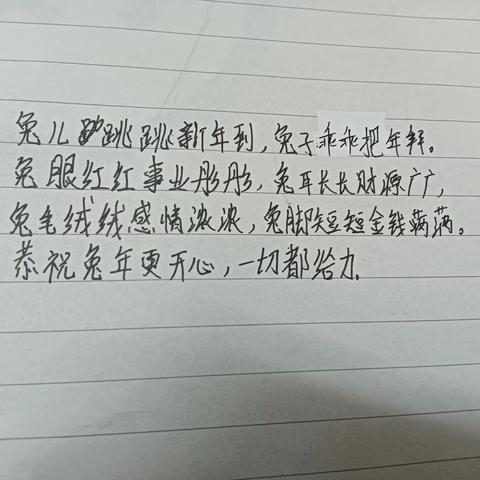 兔儿跳跳新年到，兔子乖乖把年拜。
兔眼红红事业彤彤，兔耳长长财源广广，
兔毛绒绒感情浓浓，兔脚短短金钱满满。
恭祝兔年更开心，一切都给力.